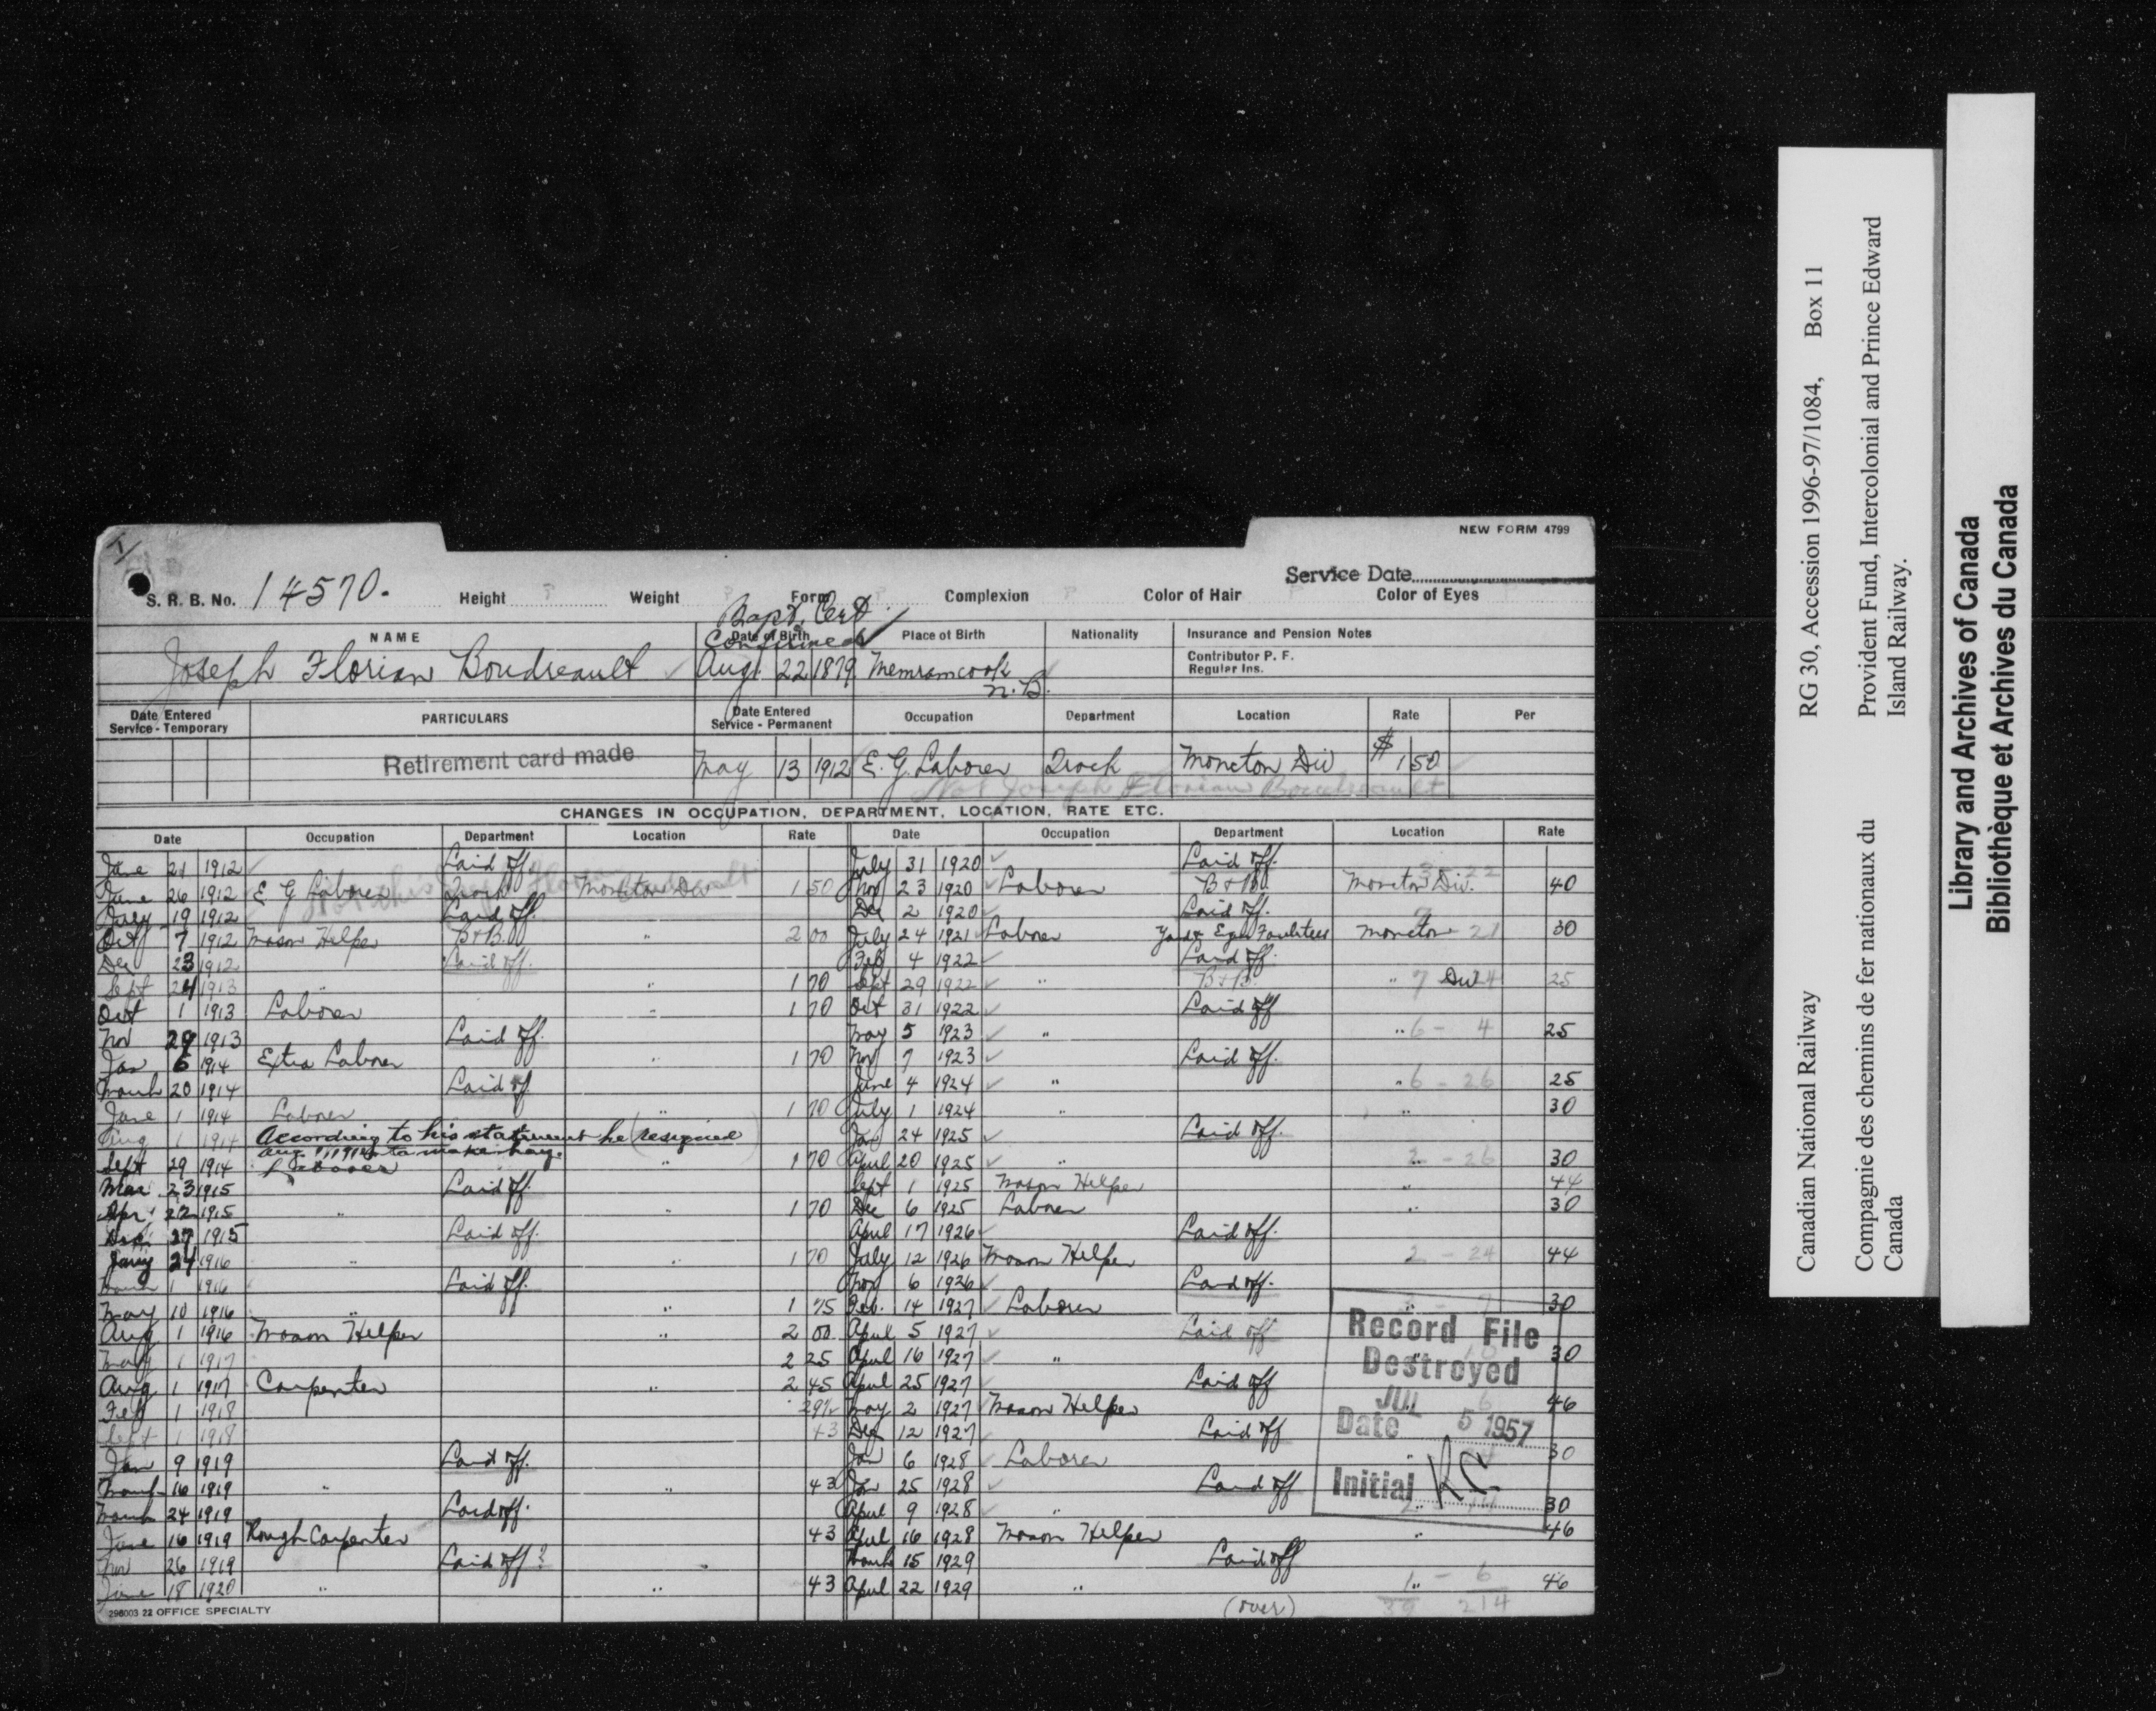 NEW FORM 4799
Service Date
S. R. B. No. 14570. Height Weight Form Complexion Color of Hair Color of Eyes
Bapt. Cert
Confirmed
NAME Date of Birth Place of Birth Nationality Insurance and Pension Notes
Contributor P. F.
Regular Ins.
Joseph Florian Boudreault Aug. 22 1879 Memramcook
N.B.
Date Entered Service - Temporary PARTICULARS Date Entered Service - Permanent Occupation Department Location Rate Per
Retirement card made May 13 1912 E. G. Laborer Track Moncton Div $ 1 50
Not Joseph Florian Boudreault
CHANGES IN OCCUPATION, DEPARTMENT, LOCATION, RATE ETC.
Date Occupation Department Location Rate Date Occupation Department Location Rate
June 21 1912 Laid off. July 31 1920 Laid off.
June 26 1912 E G Laborer Track Moncton Div 1 50 Nov 23 1920 Laborer B & B. Moncton Div. 40
July 19 1912 Laid off. Dec 2 1920 Laid off.
Oct 7 1912 Mason Helper B & B. " 2 00 July 24 1921 Laborer Moncton 30
Dec 23 1912 Laid off. Feb 4 1922 Laid off.
Sept 24 1913 " " 1 70 Sept 29 1922 " B & B. " Div 25
Oct 1 1913 Laborer " 1 70 Oct 31 1922 Laid off
Nov 29 1913 Laid off. May 5 1923 " " 6 - 4 25
Jan 6 1914 Extra Laborer " 1 70 Nov 7 1923 Laid off.
March 20 1914 Laid off June 4 1924 " " 6 - 26 25
June 1 1914 Laborer " 1 70 July 1 1924 " " 30
Aug 1 1914 According to his statement he (resigned Jan 24 1925 Laid off.
Aug. 1, 1914 to make hay.
Sept 29 1914 Laborer " 1 70 April 20 1925 " 2 - 26 30
Mar 23 1915 Laid off. Sept 1 1925 Mason Helper " 44
Apr. 22 1915 " 1 70 Dec 6 1925 Laborer " 30
Dec. 27 1915 Laid off. April 17 1926 Laid off.
Jany 24 1916 " " 1 70 July 12 1926 Mason Helper 2 - 24 44
March 1 1916 Laid off. Nov 6 1926 Laid off.
May 10 1916 " " 1 75 Feb. 14 1927 Laborer 30
Aug 1 1916 Mason Helper " 2 00. April 5 1927 Laid off
May 1 1917 2 25 April 16 1927 " 30
Aug 1 1917 Carpenter " 2 45 April 25 1927 Laid off
Feb 1 1918 May 2 1927 Mason Helper 46
Sept 1 1918 43 Dec 12 1927 Laid off
Jan 9 1919 Laid off. Jan 6 1928 Laborer " 30
March 16 1919 " " 43 Jan 25 1928 Laid off
March 24 1919 Laid off. April 9 1928 " 30
June 16 1919 Rough Carpenter 43 April 16 1928 Mason Helper " 46
Nov 26 1919 Laid off? March 15 1929 Laid off
June 18 1920 " " 43 April 22 1929 " 1 - 6 46
298003 22 OFFICE SPECIALTY (over) 39 214
Record File
Destroyed
JUL
Date 5 1957
Initial
Canadian National Railway RG 30, Accession 1996-97/1084, Box 11
Compagnie des chemins de fer nationaux du Canada
Provident Fund, Intercolonial and Prince Edward Island Railway.
Library and Archives of Canada
Bibliothèque et Archives du Canada